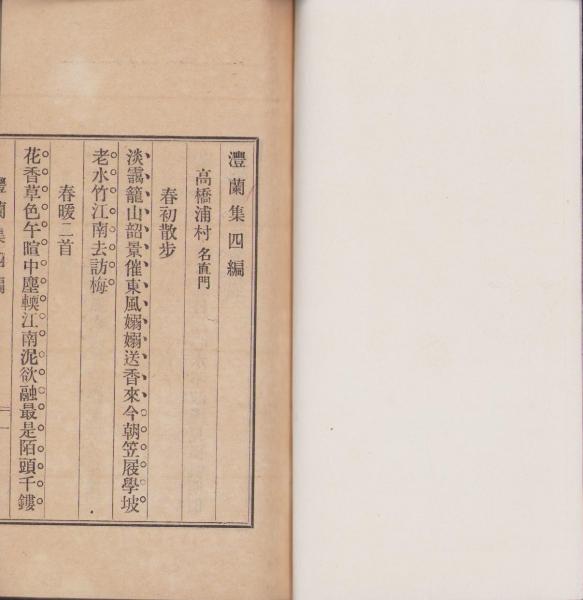 灃蘭集四編
高橋浦村 名直門
春初散步
淡靄籠山韶景催東風嫋嫋送香來今朝笠屐學坡
老水竹江南去訪梅
春暖二首
花香草色午暄中塵輭江南泥欲融最是陌頭千鏤
灃蘭集四編